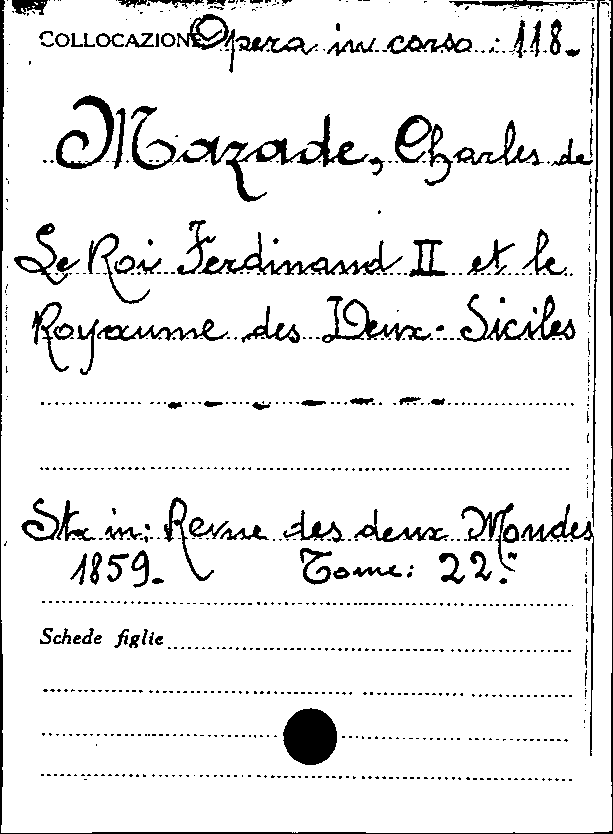 COLLOCAZIONE Opera in corso: 118.
Mazade, Charles de
Le Roi Ferdinand II et le
Royaume des Deux-Siciles
Sta in: Revue des deux Mondes
1859. Tome: 22.º
Schede figlie